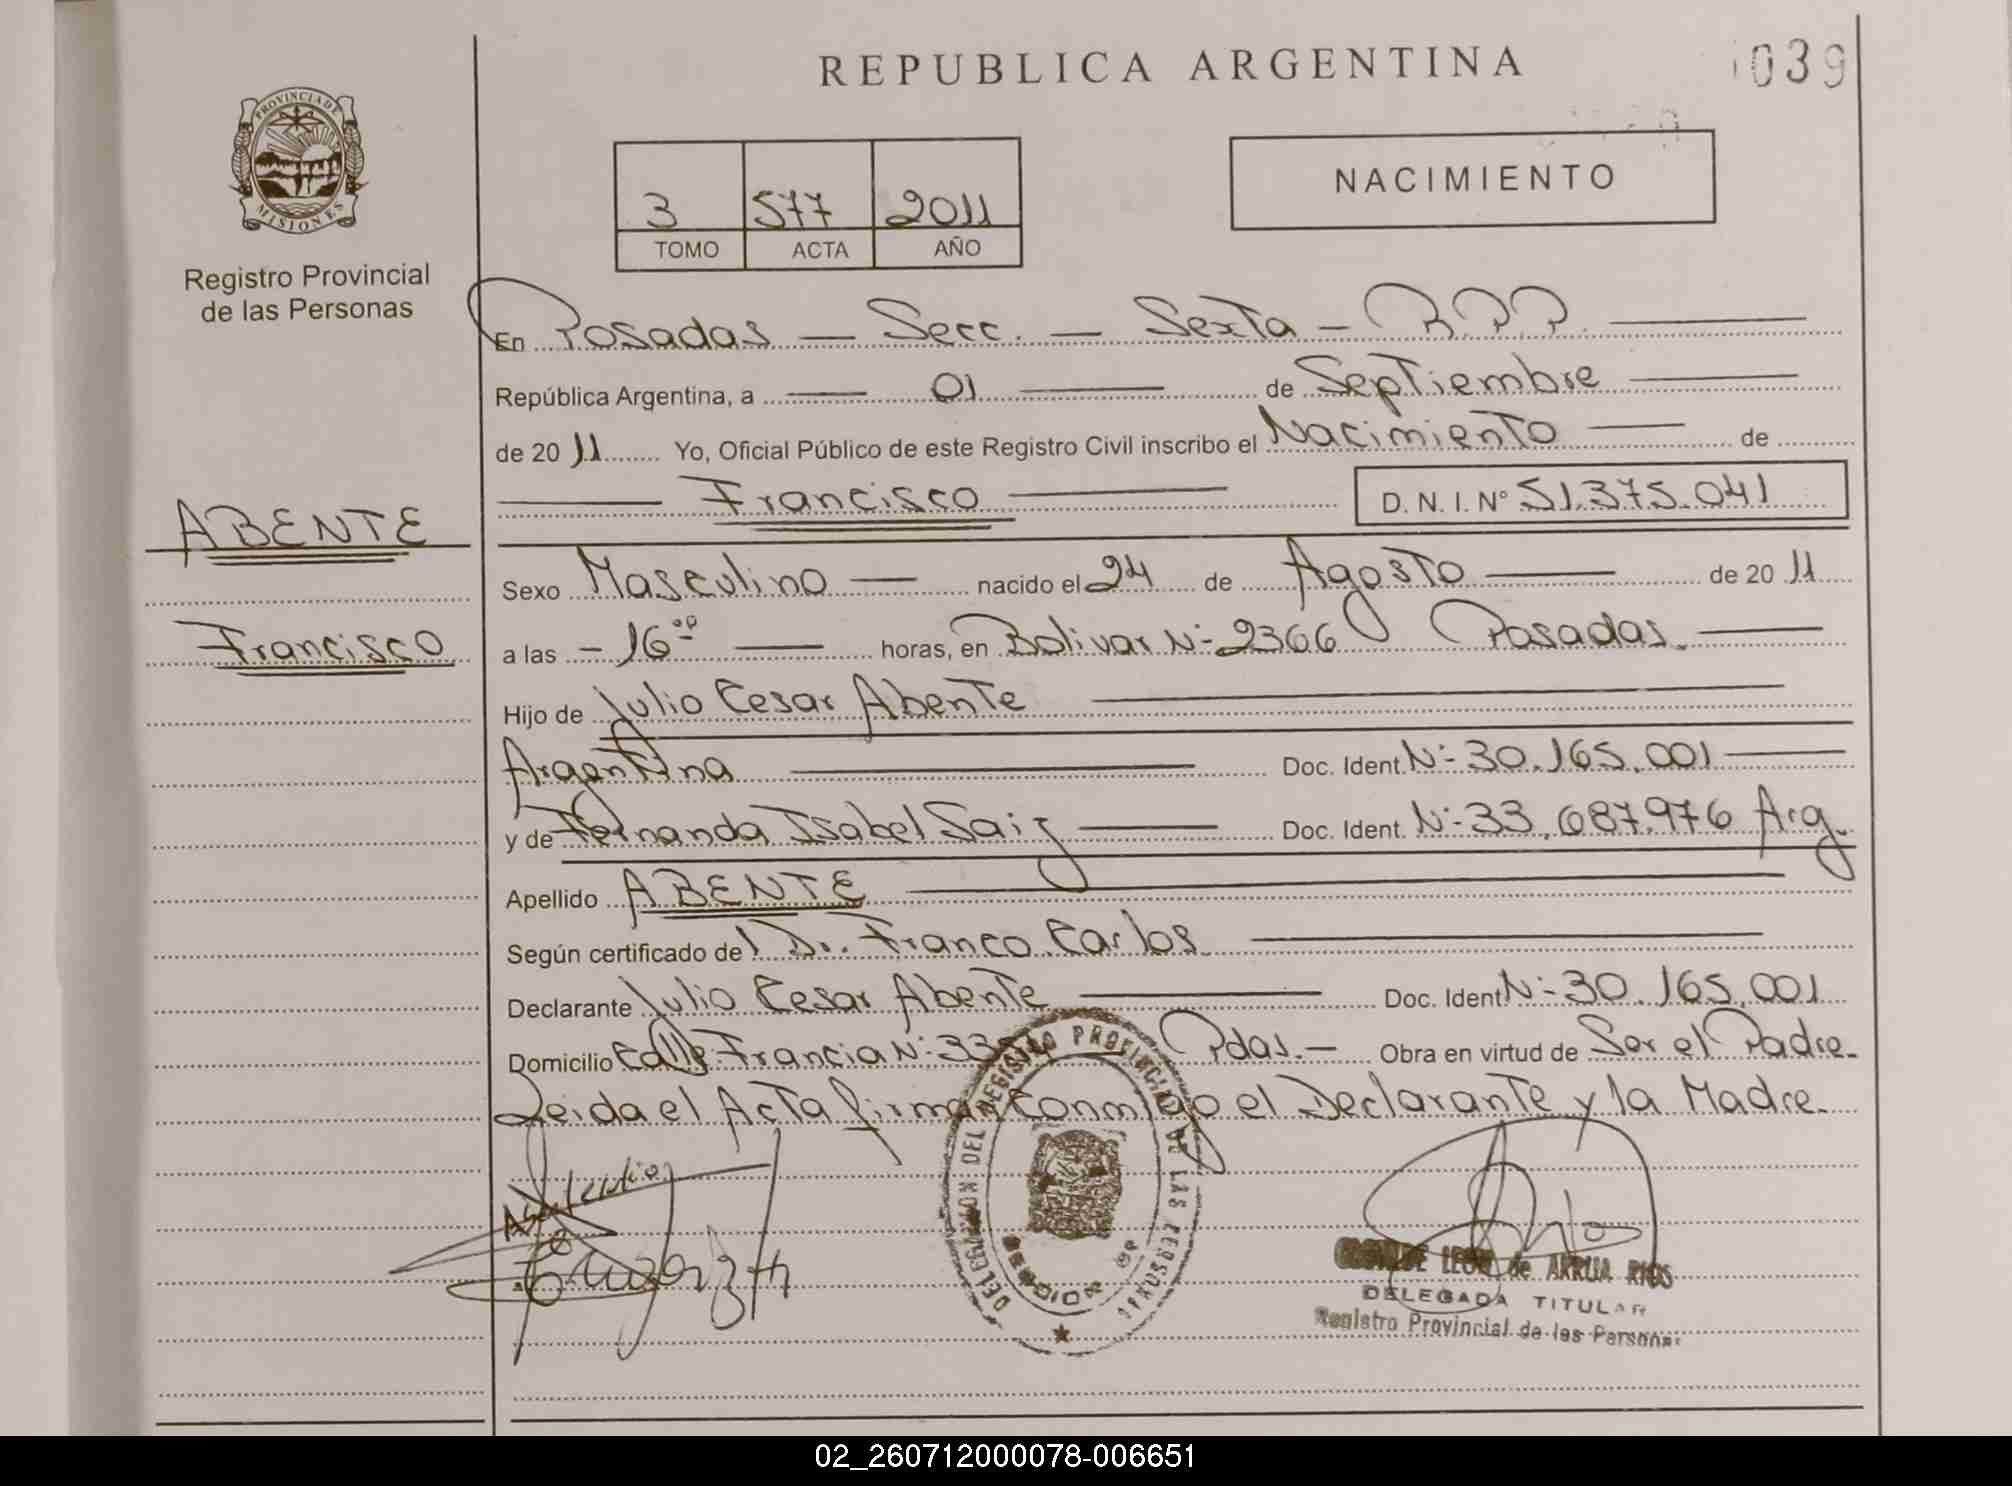 REPUBLICA ARGENTINA
039
PROVINCIA DE
MISIONES
Registro Provincial
de las Personas
3 577 2011
TOMO ACTA AÑO
NACIMIENTO
En Posadas — Secc. — Sexta — R.P.P.
República Argentina, a — 01 — de Septiembre
de 2011 Yo, Oficial Público de este Registro Civil inscribo el Nacimiento — de
Francisco D. N. I. Nº 51.375.041
ABENTE
Francisco
Sexo Masculino — nacido el 24 de Agosto — de 2011
a las - 16 00 — horas, en Bolivar Nº 2366 Posadas. —
Hijo de Julio Cesar Abente
Argentina — Doc. Ident Nº 30.165.001 —
y de Fernanda Isabel Saiz — Doc. Ident. Nº 33.687.976 Arg.
Apellido ABENTE
Según certificado del Dr. Franco Carlos
Declarante Julio Cesar Abente — Doc. Ident Nº 30.165.001
Domicilio Calle Francia Nº Pdas. — Obra en virtud de Ser el Padre.
Leida el Acta firman conmigo el Declarante y la Madre.
DELEGACION DEL REGISTRO PROVINCIAL DE LAS PERSONAS
LEON de ARRUA RIOS
DELEGADA TITULAR
Registro Provincial de las Personas
02_260712000078-006651